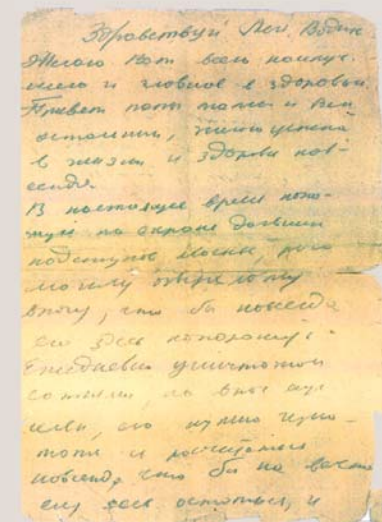 Здравствуй Лёй, Вадик
Желаю Вам всего наилуч.
шего и главное в здоровьи.
Привет папе маме и Всем
остальным, желаю успеха
в жизни и здоровья нав-
сегда.
В настоящее время нахо-
жусь на охране дальних
подступов Москвы, рою
могилу озверелому
врагу, что бы навсегда
его здесь похоронить.
Ежедневно уничтожаем
сотнями, но враг еще
его нужно уничто-
что бы на
здесь остаться, и